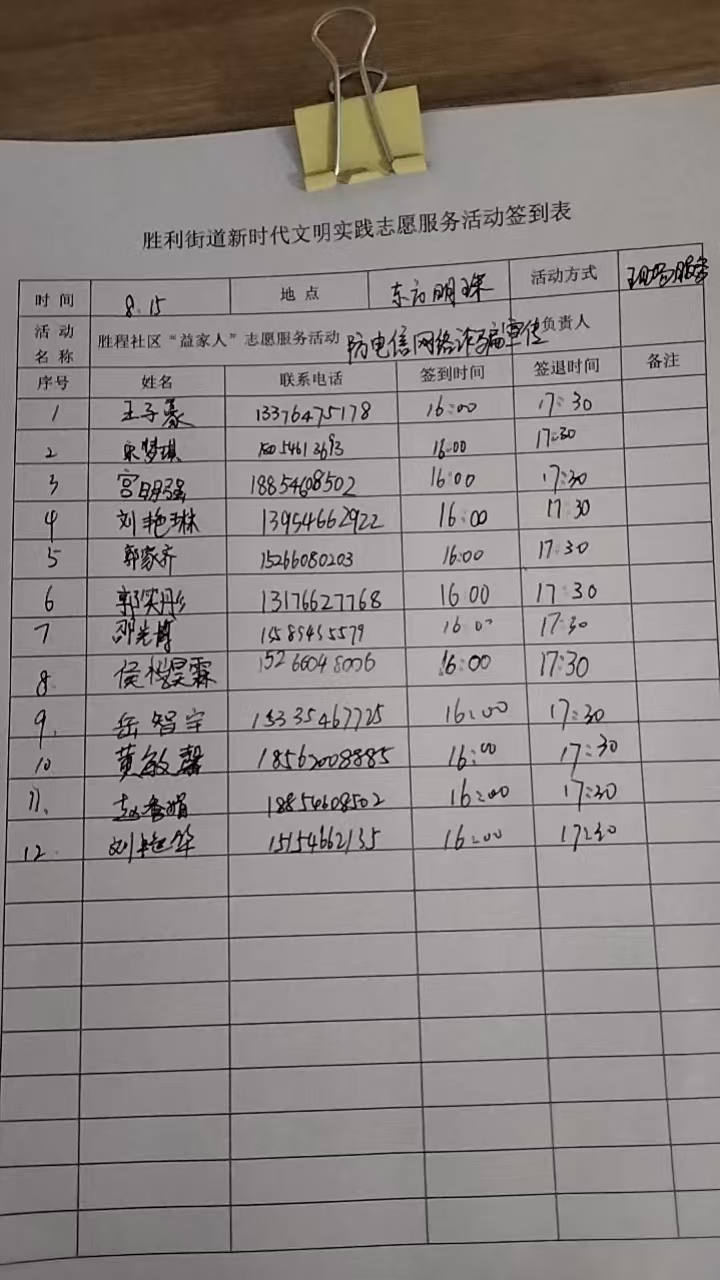 胜利街道新时代文明实践志愿服务活动签到表
时间 8.15 地点 东方明珠 活动方式 现场服务
活动名称 胜程社区“益家人”志愿服务活动 防电信网络诈骗宣传 负责人
序号 姓名 联系电话 签到时间 签退时间 备注
1 王子豪 13376475178 16:00 17:30
2 宋梦琪 16:00 17:30
3 宫明强 18854608502 16:00 17:30
4 刘艳琳 13954662922 16:00 17:30
5 郭家齐 15266080203 16:00 17:30
6 13176627768 16 00 17:30
7 邵光博 17:30
8. 15266048006 16:00 17:30
9. 岳智宇 15335467725 16:00 17:30
10 黄敏馨 18562008885 16:00 17:30
11. 赵香娟 18854608502 16:00 17:30
12. 刘艳华 15154662135 16:00 17:30